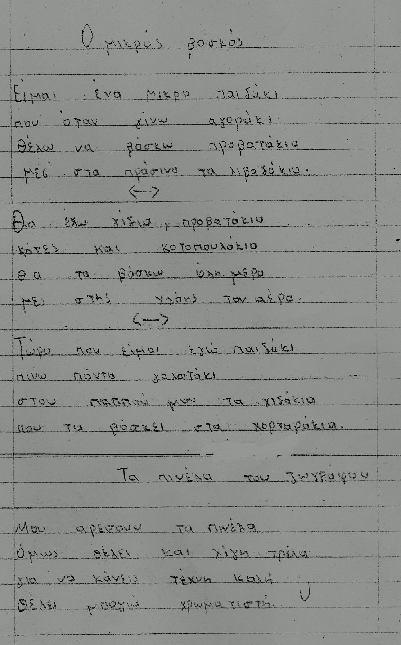 Ο μικρός βοσκός
Είμαι ένα μικρό παιδάκι
που όταν γίνω αγοράκι
θέλω να βόσκω προβατάκια
μες στα πράσινα τα λιβαδάκια.
<-->
Θα έχω γίδια, προβατάκια
κότες και κοτοπουλάκια
θα τα βόσκω όλη μέρα
μες στης χλόης τον αέρα.
<-->
Τώρα που είμαι εγώ παιδάκι
πίνω πάντα γαλατάκι
στου παππού μου τα γιδάκια
που τα βόσκει στα χορταράκια.
Τα πινέλα του ζωγράφου
Μου αρέσουν τα πινέλα
όμως θέλει και λίγη τρέλα
για να κάνεις τέχνη καλή
θέλει χρωματιστή.